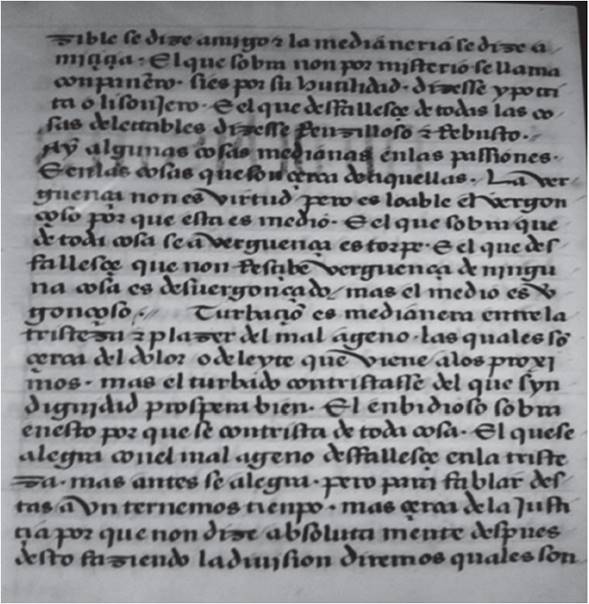 zible se dize amigo & la medianeria se dize a
miçiçia· E el que sobra non por misterio se llama
conpanero· si es por su humildad· dizesse ypocri
ta o lisonjero· E el que desfallesçe de todas las co
sas delectables dizesse Renzilloso & Rebusto·
Ay algunas cosas medianas en las passiones·
E en las cosas que son çerca de aquellas· La ver
guença non es virtud pero es loable el vergon
çoso por que esta es medio· E el que sobra que
de toda cosa se a verguença es torpe· E el que des
fallesçe que non Resçibe verguença de ningu
na cosa es desuergonçado/ mas el medio es v̄
gonçoso/· Turbaçiō es medianera entre la
tristeza & plazer del mal ageno· las quales sō
çerca del dolor o deleyte que viene a los proxi
mos· mas el turbado contristasse del que syn
dignidad prospera bien· El enbidioso sobra
en esto por que se contrista de toda cosa· El que se
alegra con el mal ageno desfallesçe en la triste
za· mas antes se alegra· pero para fablar des
tas avn ternemos tienpo· mas çerca de la justi
çia por que non dize absoluta mente despues
desto faziendo la diuision diremos quales son